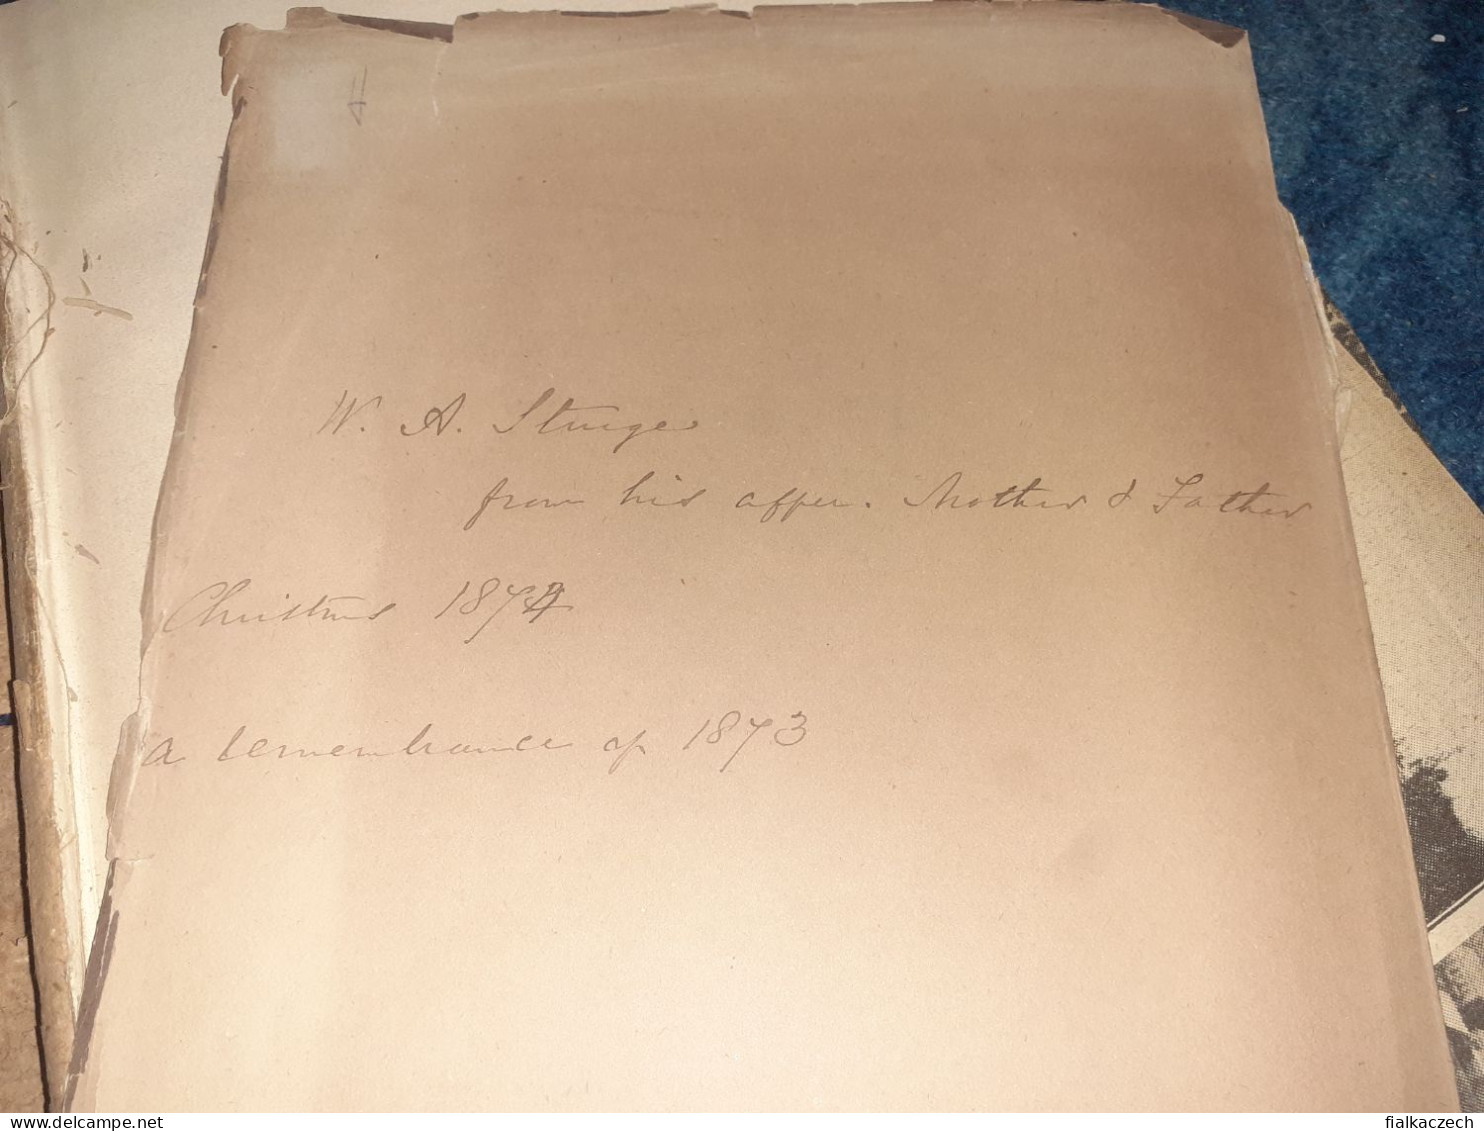 W. A. Sturge
from his affec. Mother & Father
Christmas 1874
a remembrance of 1873
www.delcampe.net
fialkaczech